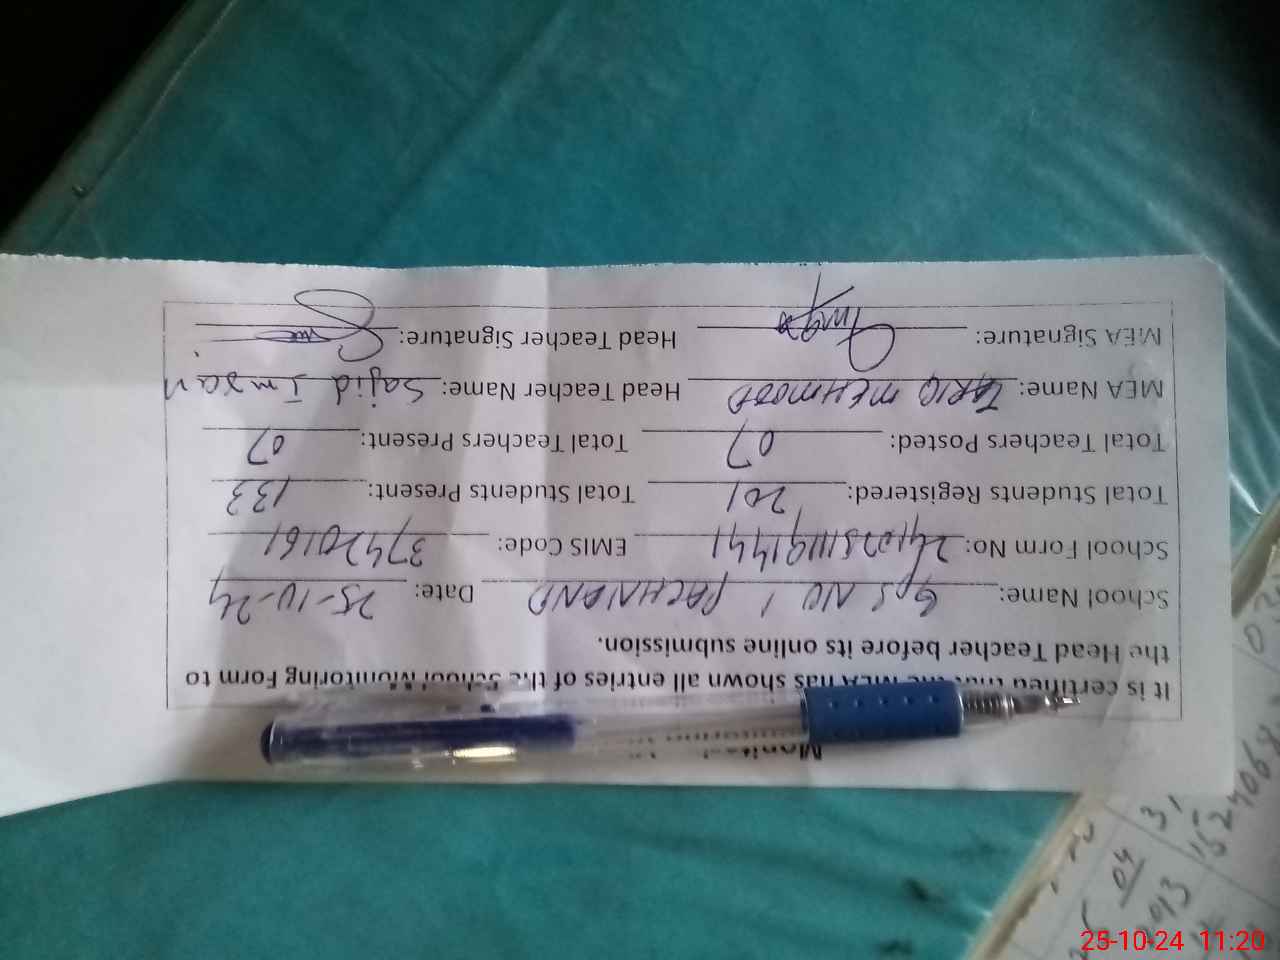 It is certified that the MEA has shown all entries of the School Monitoring Form to
the Head Teacher before its online submission.
School Name: GPS NO 1 PACHNAND Date: 25-10-24
School Form No: EMIS Code: 37420161
Total Students Registered: 201 Total Students Present: 133
Total Teachers Posted: 07 Total Teachers Present: 07
MEA Name: TARIQ MEHMOOD Head Teacher Name: Sajid Imran
MEA Signature: Head Teacher Signature:
25-10-24 11:20